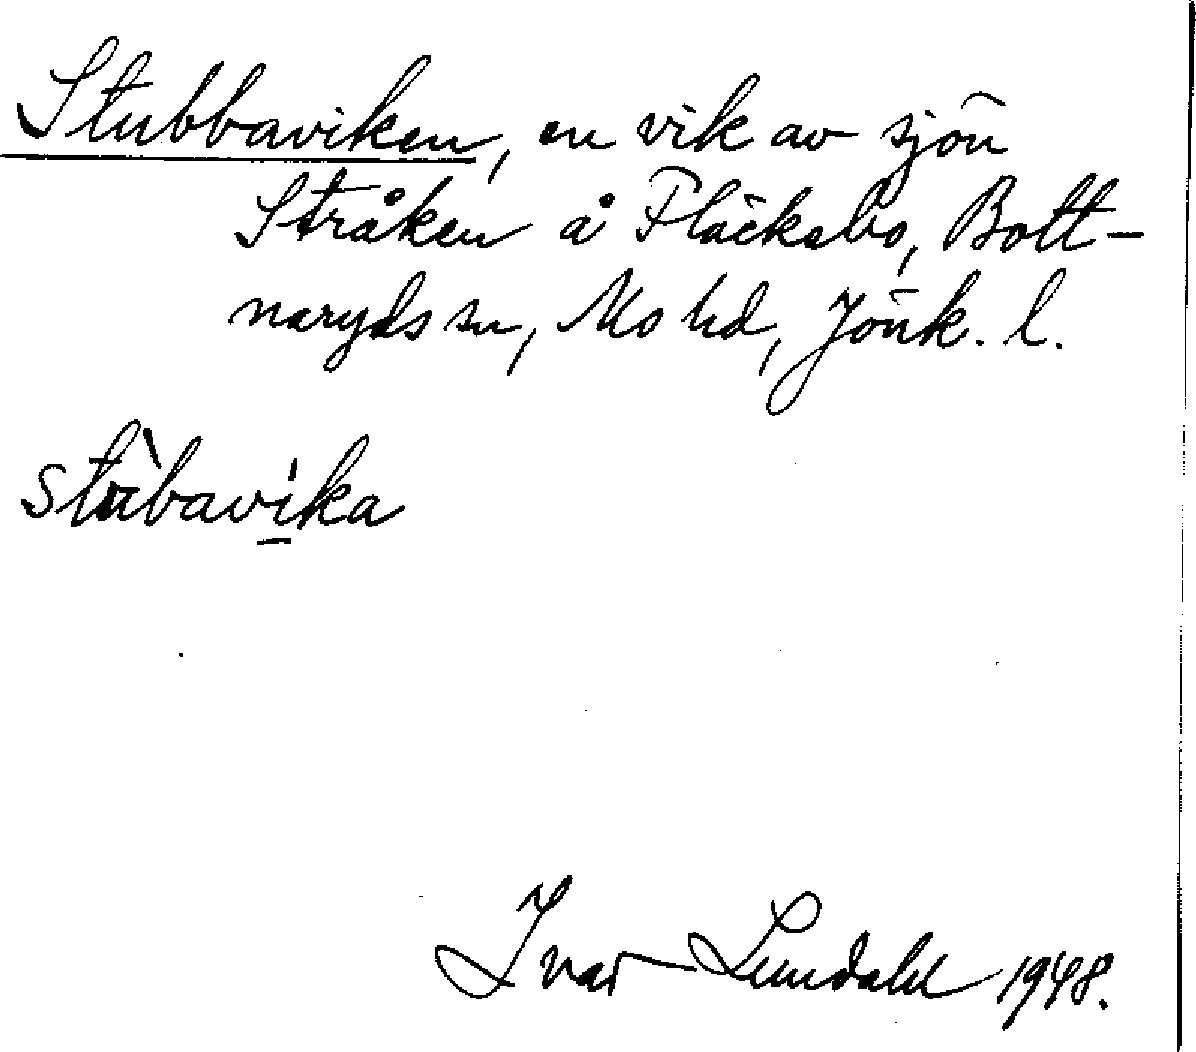 Stubbaviken, en vik av sjön
Stråken å Fläcksbo, Bott-
naryds sn, Mo hd, Jönk. l.
stùbaví̱ka
Ivar Lundahl 1948.